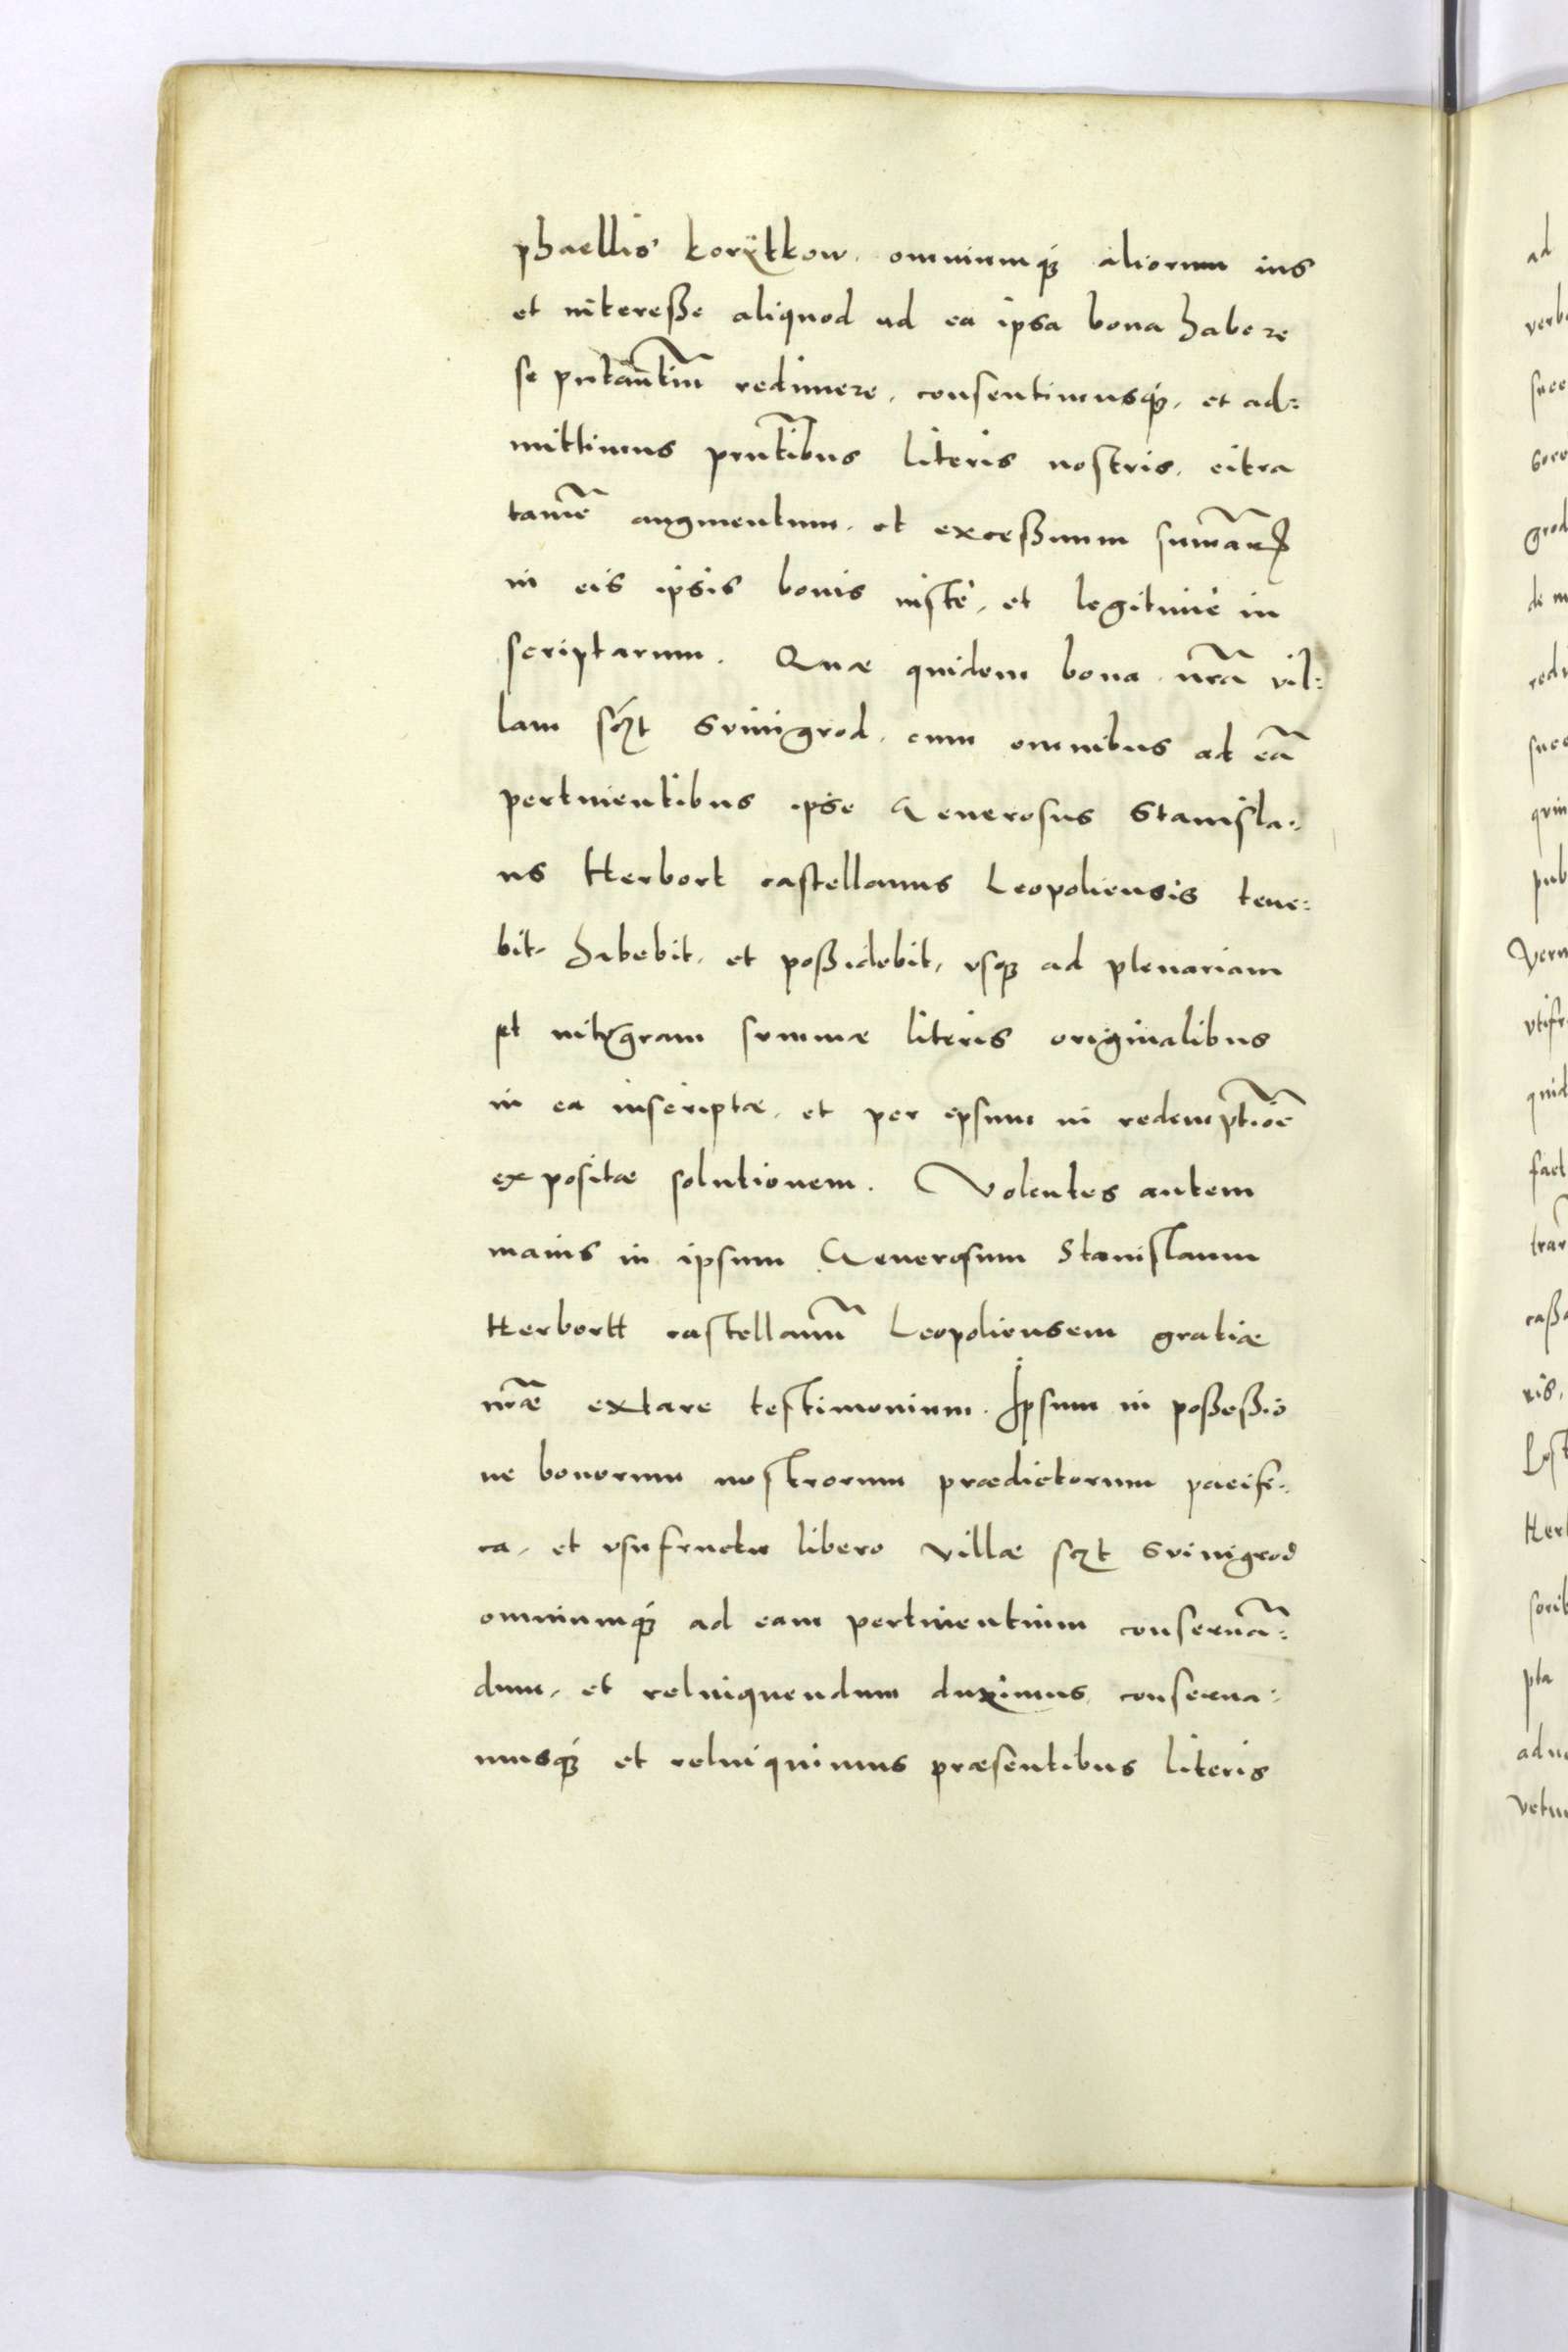 phaellis korÿtkow, omniumq́ꝫ aliorum ius
et interesse aliquod ad ea ipsa bona habere
se putantiũ redimere, consentimusq́ꝫ, et ad:
mittimus pñtibus literis nostris, citra
tamẽ augmentum, et excessiuum sum̃arꝝ
in eis ipsis bonis iustè, et legitimè in
scriptarum. Quæ quidem bona nr̃a vil:
lam scꝫt Svinigrod, cum omnibus ad eã
pertinentibus ipse Generosus Stanisla:
us Herbort castellanus Leopoliensis tene:
bit, habebit, et possidebit, vsqꝫ ad plenariam
et integram summæ literis originalibus
in ea inscriptæ, et per ipsum in redemptiõẽ
expositæ solutionem. Volentes autem
maius in ipsum Generosum Stanislaum
Herbortt castellanũ Leopoliensem gratiæ
nr̃æ extare testimonium. Ipsum in possessio
ne bonorum nostrorum prædictorum pacifi:
ca, et vsufructu libero villæ scꝫt Svinigrod
omniumq́ꝫ ad eam pertinentium conseruã:
dum, et relinquendum duximus, conserua:
musq́ꝫ et relinquimus præsentibus literis
ad
grod